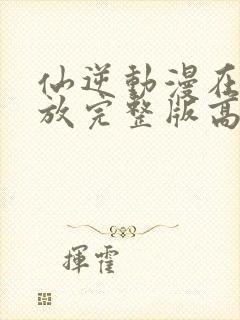 仙逆動漫在
放完整版高
揮霍